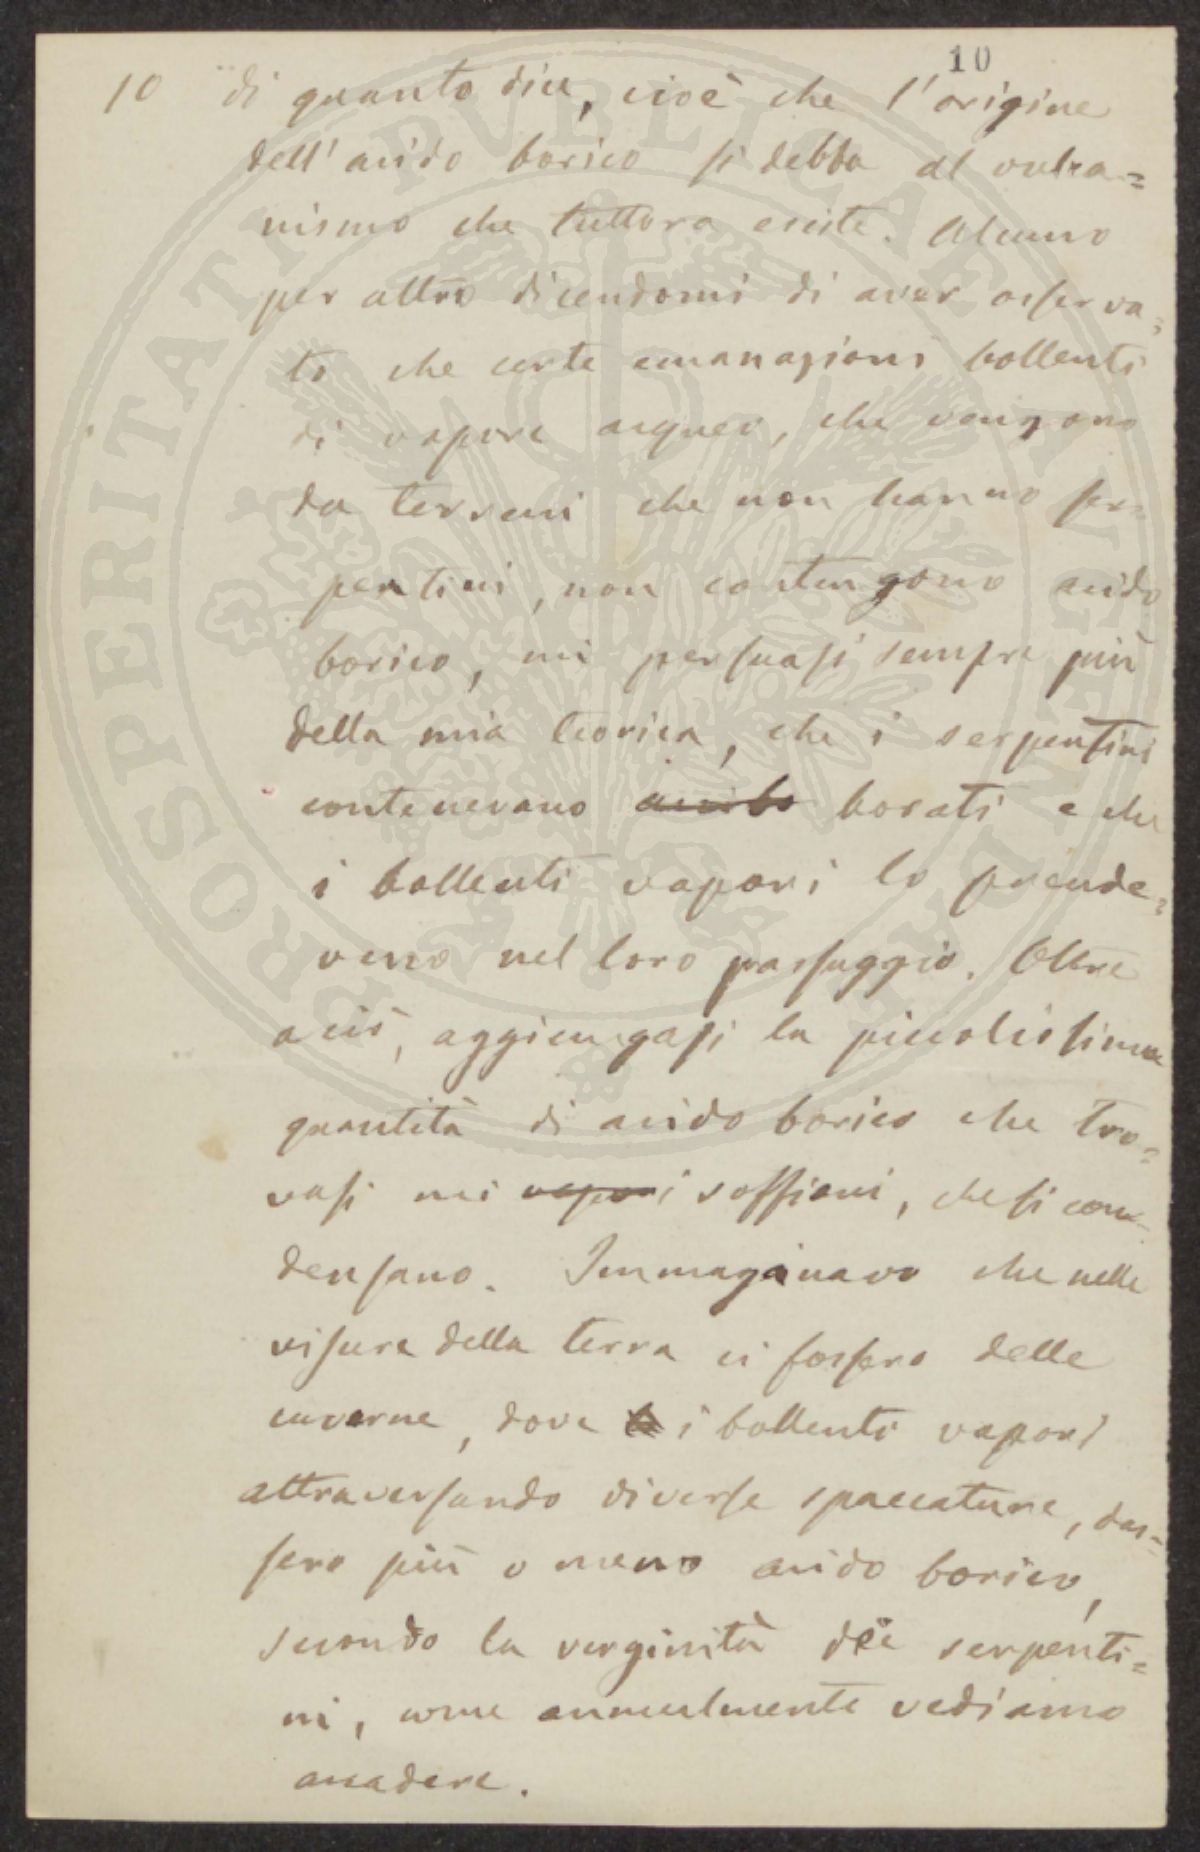 10
10 di quanto dice, cioè che l'origine
dell'acido borico si debba al vulca=
nismo che tuttora esiste. Alcuno
per altro dicendomi di aver osserva=
to che certe emanazioni bollenti
di vapore acqueo, che vengono
da terreni che non hanno ser=
pentini, non contengono acido
borico, mi persuasi sempre più
della mia teorica, che i serpentini
contenevano acido borati e che
i bollenti vapori lo prende=
veno nel loro passaggio. Oltre
a ciò, aggiungasi la piccolissima
quantità di acido borico che tro=
vasi nei vapori soffioni, che si con=
densano. Immaginavo che nelle
visure della terra ci fossero delle
caverne, dove i bollenti vapori
attraversando diverse spaccature, das=
sero più o meno acido borico,
secondo la verginità dei serpenti=
ni, come annualmente vediamo
accadere.
PROSPERITATI PVBLICAE AVGENDAE